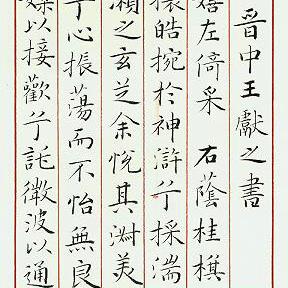 晉中王獻之書
嬉左倚采 右蔭桂棋
攘皓捥於神滸兮採湍
瀨之玄芝余悅其淑美
兮心振蕩而不怡無良
媒以接歡兮託微波以通